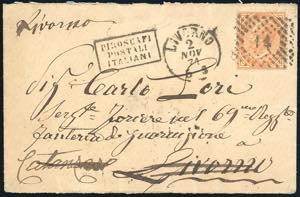 Livorno
PIROSCAFI
POSTALI
ITALIANI
LIVORNO
2
NOV
71
Sig. Carlo Lori
Serg.te Furiere nel 69mo Regg.to
fanteria di Guarnigione a
Catanzaro Livorno